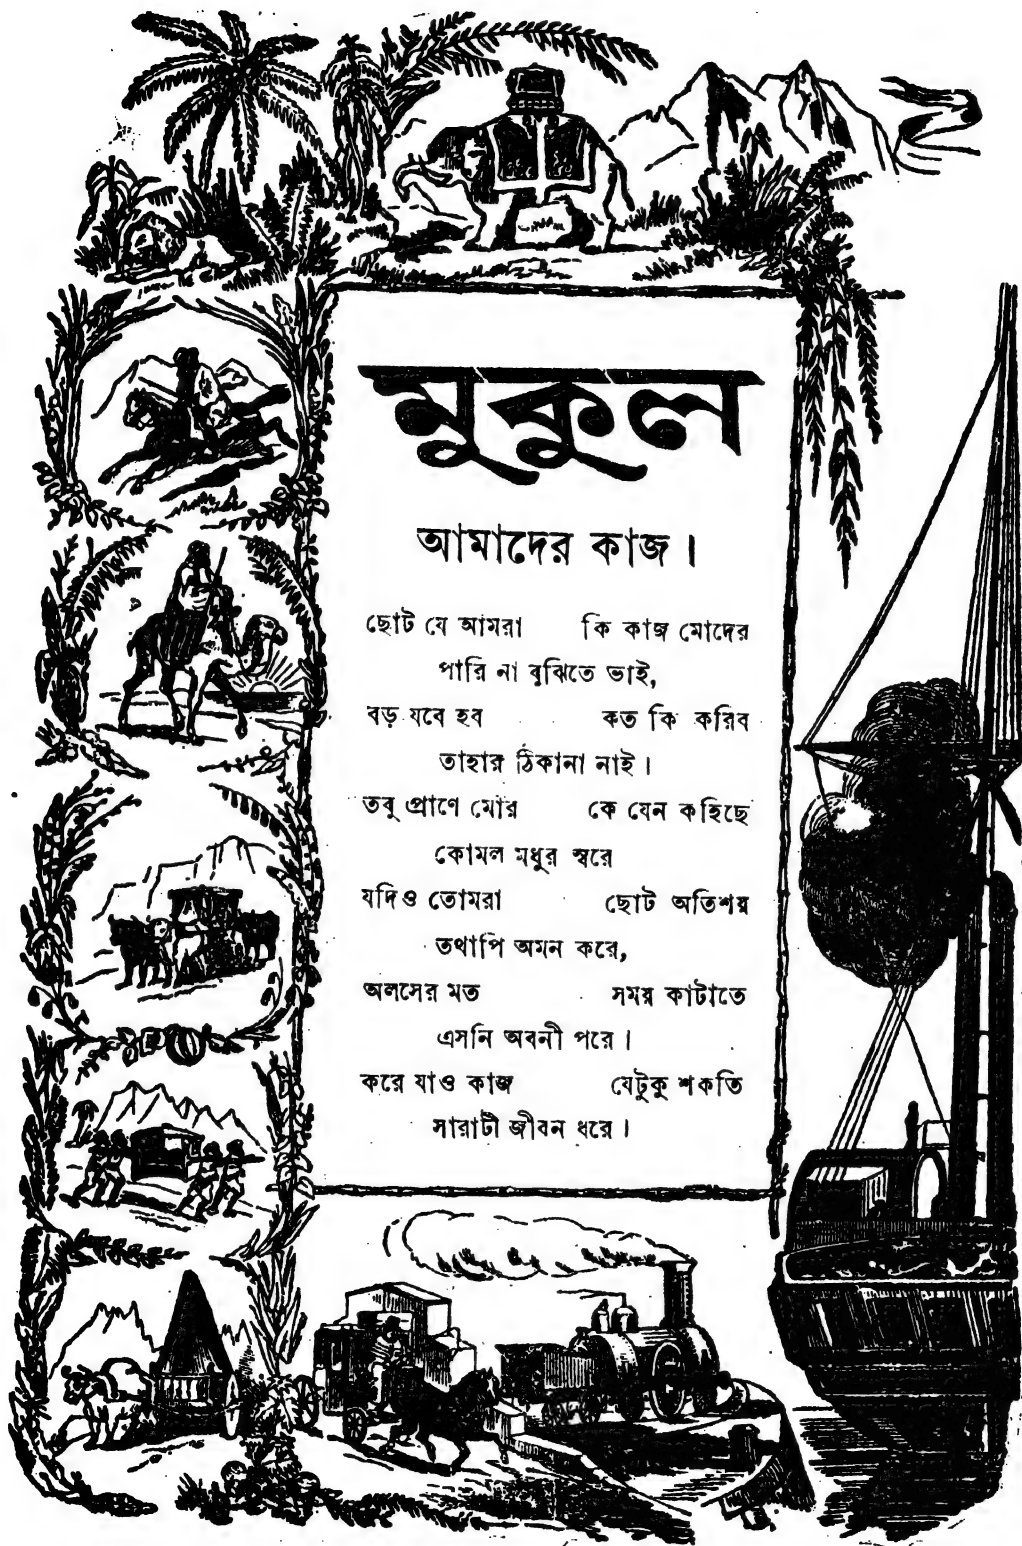 মুকুল
আমাদের কাজ।
ছোট যে আমরা কি কাজ মোদের
পারি না বুঝিতে ভাই,
বড় যবে হব কত কি করিব
তাহার ঠিকানা নাই।
তবু প্রাণে মোর কে যেন কহিছে
কোমল মধুর স্বরে
যদিও তোমরা ছোট অতিশয়
তথাপি অমন করে,
অলসের মত সময় কাটাতে
এসনি অবনী পরে।
করে যাও কাজ যেটুকু শকতি
সারাটী জীবন ধরে।